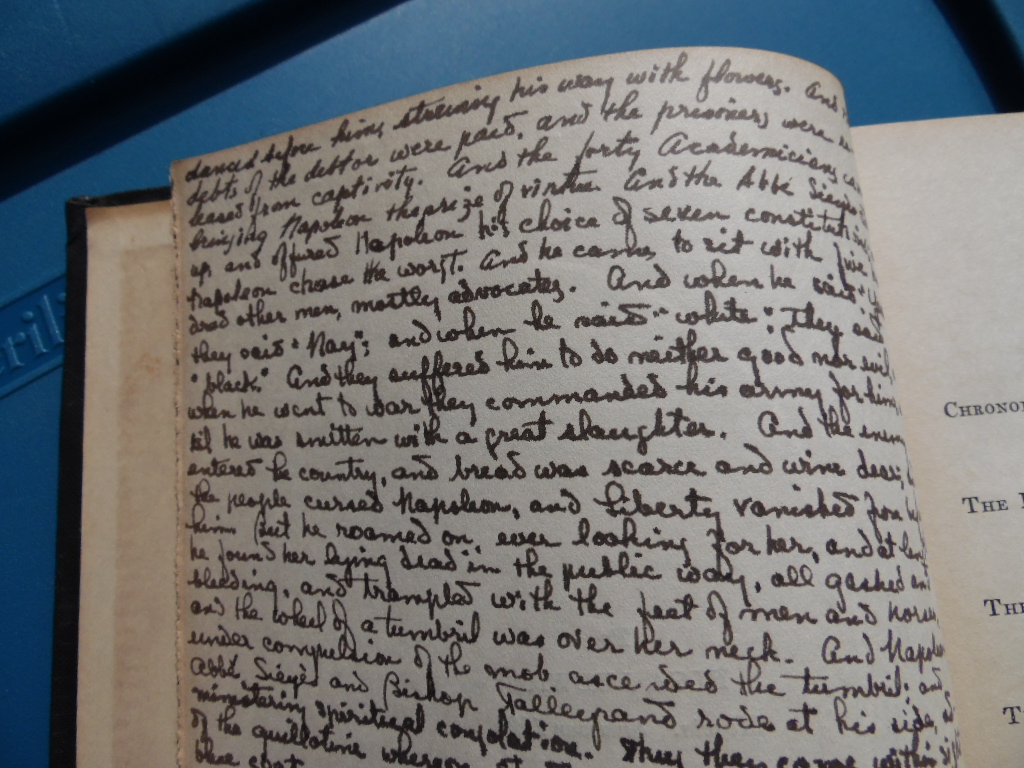 danced before him, strewing his way with flowers. And
debts of the debtor were paid, and the prisoners were re
leased from captivity. And the forty Academicians ca
bringing Napoleon the prize of virtue. And the Abbé Sieyès
up, and offered Napoleon his choice of seven constitutions
Napoleon chose the worst. And he came to sit with five
dred other men, mostly advocates. And when he said "
they said "Nay"; and when he said "white"; They said
"black." And they suffered him to do neither good nor evil,
when he went to war they commanded his army for him,
til he was smitten with a great slaughter. And the enemy
entered the country, and bread was scarce and wine dear;
the people cursed Napoleon, and Liberty vanished from
him. But he roamed on, ever looking for her, and at len
he found her lying dead in the public way, all gashed and
bleeding, and trampled with the feet of men and horses,
and the wheel of a tumbril was over her neck. And Napole
under compulsion of the mob ascended the tumbril; and
Abbé Sieyès and Bishop Talleyrand rode at his side,
ministering spiritual consolation. Thus they came within sig
of the guillotine whereon
blue coat
CHRONO
THE
TH
T
ril